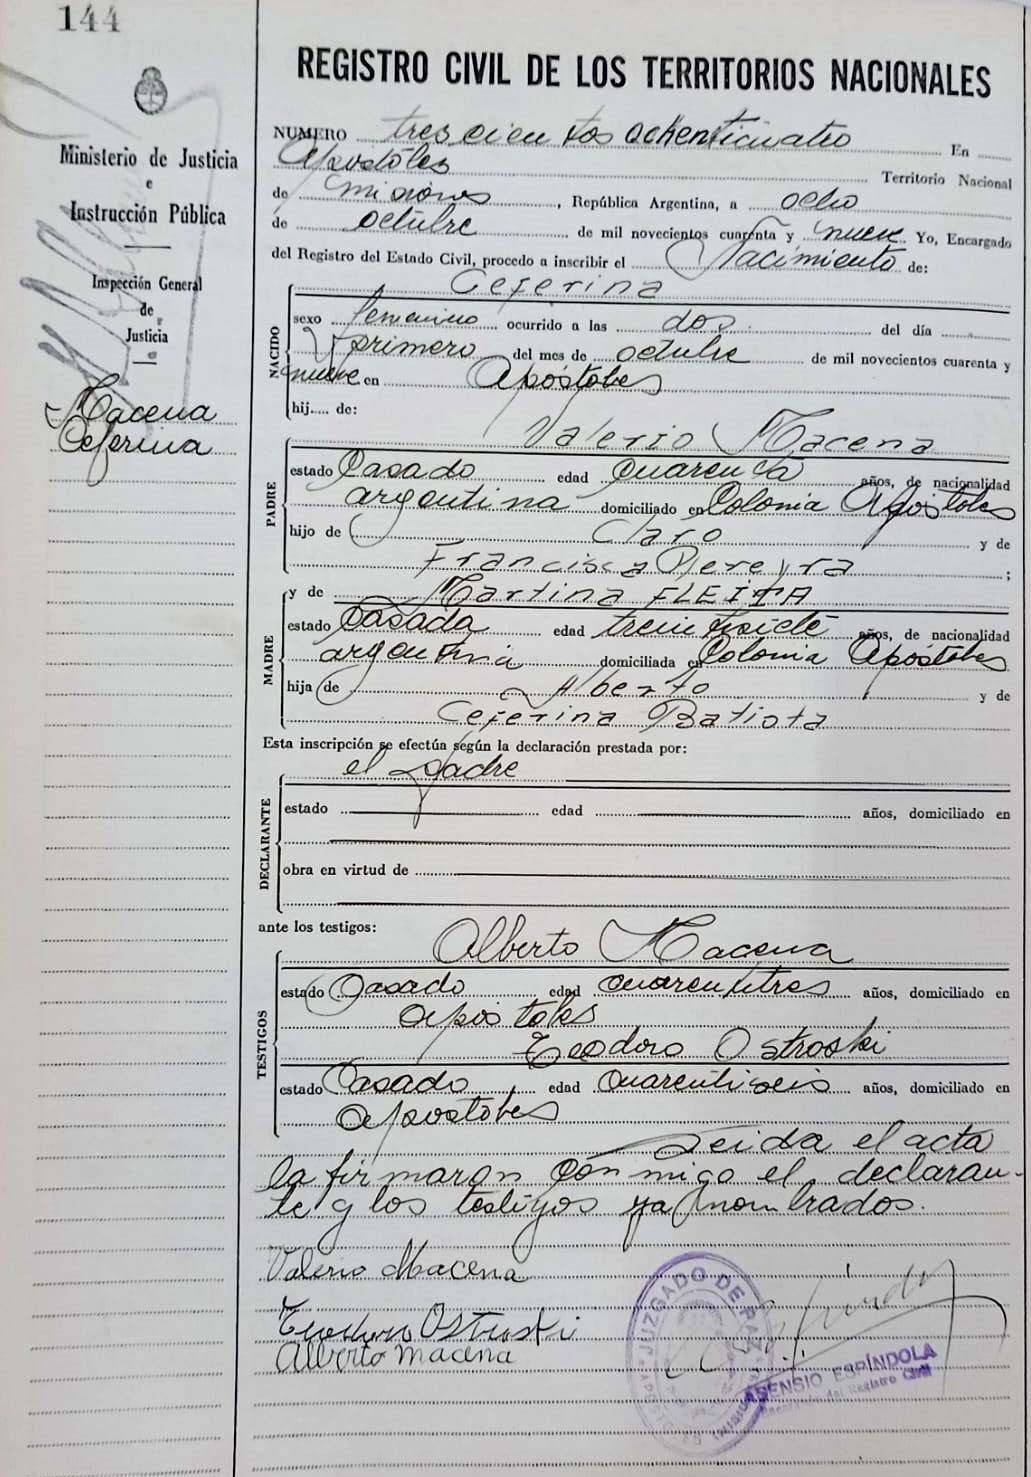 144
Ministerio de Justicia
e
Instrucción Pública
Inspección General
de
Justicia
Macena
Ceferina
REGISTRO CIVIL DE LOS TERRITORIOS NACIONALES
NUMERO trescientos ochenticuatro En
Apostoles Territorio Nacional
de Misiones, República Argentina, a ocho
de octubre de mil novecientos cuarenta y nueve Yo, Encargado
del Registro del Estado Civil, procedo a inscribir el Nacimiento de:
NACIDO
Ceferina
sexo femenino ocurrido a las dos del día
primero del mes de octubre de mil novecientos cuarenta y
nueve en Apóstoles
hij..... de:
PADRE
Valerio Macena
estado Casado edad cuarenta años, de nacionalidad
argentina domiciliado en Colonia Apóstoles
hijo de Claro y de
Francisca Pereyra ;
MADRE
y de Martina FLEITA
estado Casada edad treintisiete años, de nacionalidad
argentina domiciliada en Colonia Apóstoles
hija de Alberto y de
Ceferina Batista
Esta inscripción se efectúa según la declaración prestada por:
DECLARANTE
el padre
estado edad años, domiciliado en
obra en virtud de
ante los testigos:
TESTIGOS
Alberto Macena
estado Casado edad cuarentitres años, domiciliado en
apostoles
Teodoro Ostroski
estado Casado edad cuarentiseis años, domiciliado en
apostoles
Leida el acta
la firmaron conmigo el declaran-
te y los testigos ya nombrados.
Valerio Macena
Teodoro Ostroski
Alberto macena
JUZGADO DE PAZ
ASENSIO ESPÍNDOLA
del Registro Civil